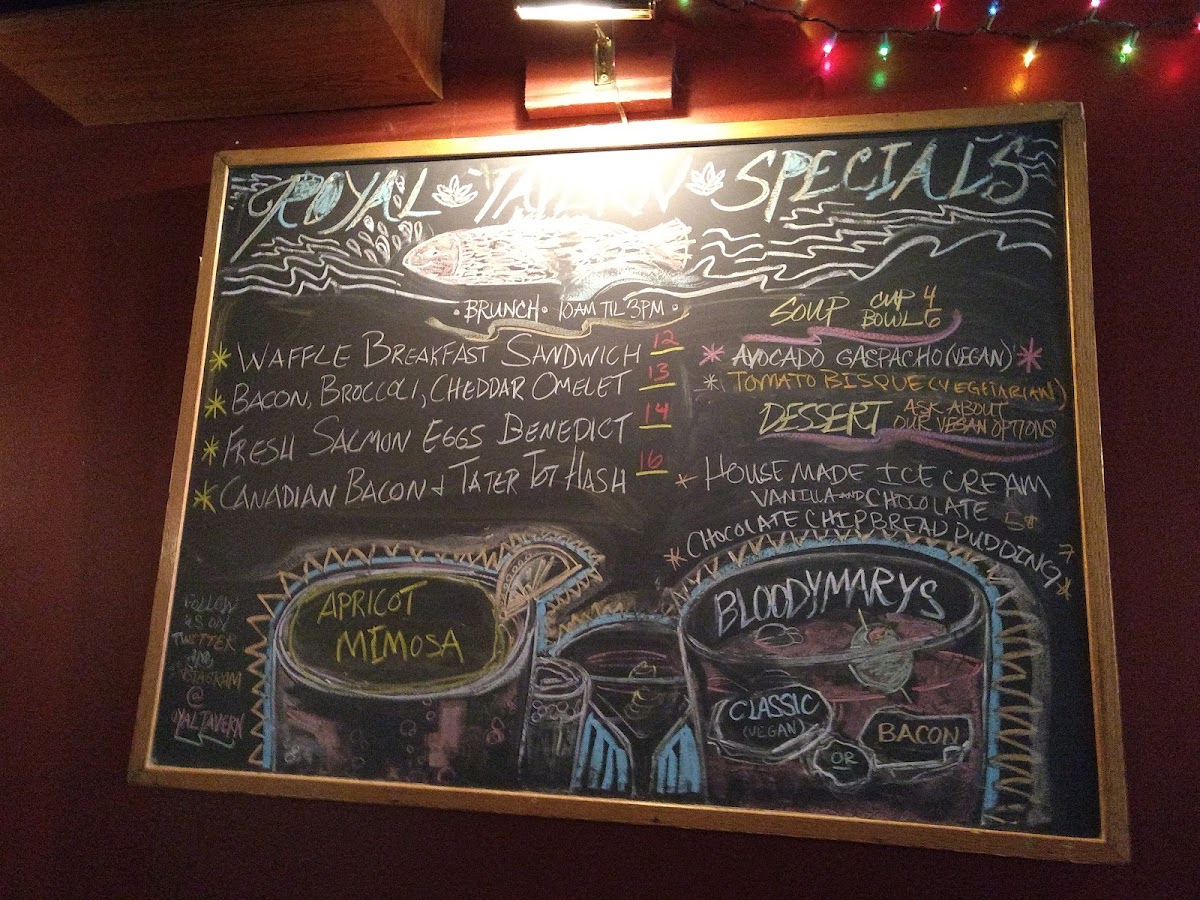 ROYAL TAVERN SPECIALS
BRUNCH · 10AM TIL 3PM ·
WAFFLE BREAKFAST SANDWICH 12
BACON, BROCCOLI, CHEDDAR OMELET 13
FRESH SALMON EGGS BENEDICT 14
CANADIAN BACON & TATER TOT HASH 16
SOUP CUP 4
BOWL 6
* AVOCADO GASPACHO (VEGAN) *
* TOMATO BISQUE (VEGETARIAN)
DESSERT ASK ABOUT
OUR VEGAN OPTIONS
* HOUSE MADE ICE CREAM
VANILLA AND CHOCOLATE 5
* CHOCOLATE CHIP BREAD PUDDING 7
FOLLOW
US ON
TWITTER
AND
INSTAGRAM
@
ROYALTAVERN
APRICOT
MIMOSA
BLOODYMARYS
CLASSIC
(VEGAN)
OR
BACON